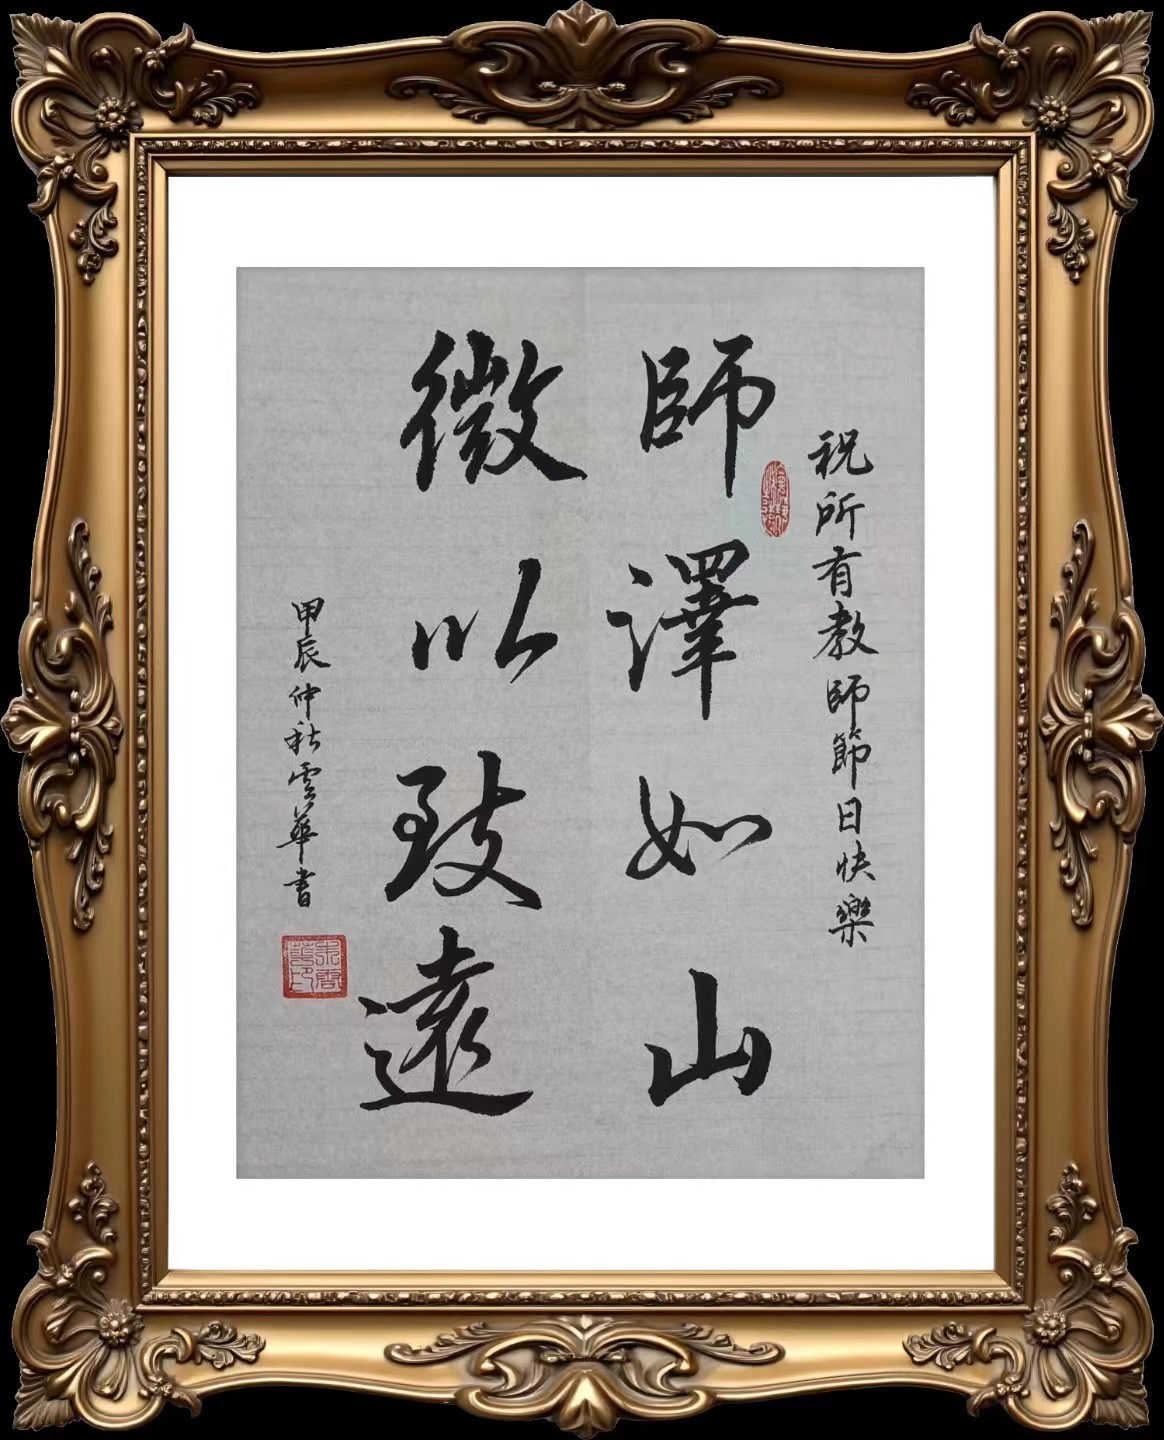 祝所有教師節日快樂
師澤如山
微以致遠
甲辰仲秋雲華書